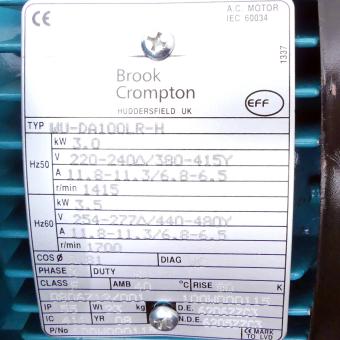 A.C. MOTOR
IEC 60034
Brook
Crompton
HUDDERSFIELD UK
EFF
1337
TYP WU-DA100LR-H
Hz50
kW 3.0
V 220-240Δ/380-415Y
A 11.8-11.3/6.8-6.5
r/min 1415
Hz60
kW 3.5
V 254-277Δ/440-480Y
A 11.8-11.3/6.8-6.5
r/min 1700
COS Ø DIAG
PHASE DUTY
CLASS AMB 40 °C RISE 80 K
IP Wt kg D.E.
IC YR N.D.E.
P/No
CE MARK
TO LVD